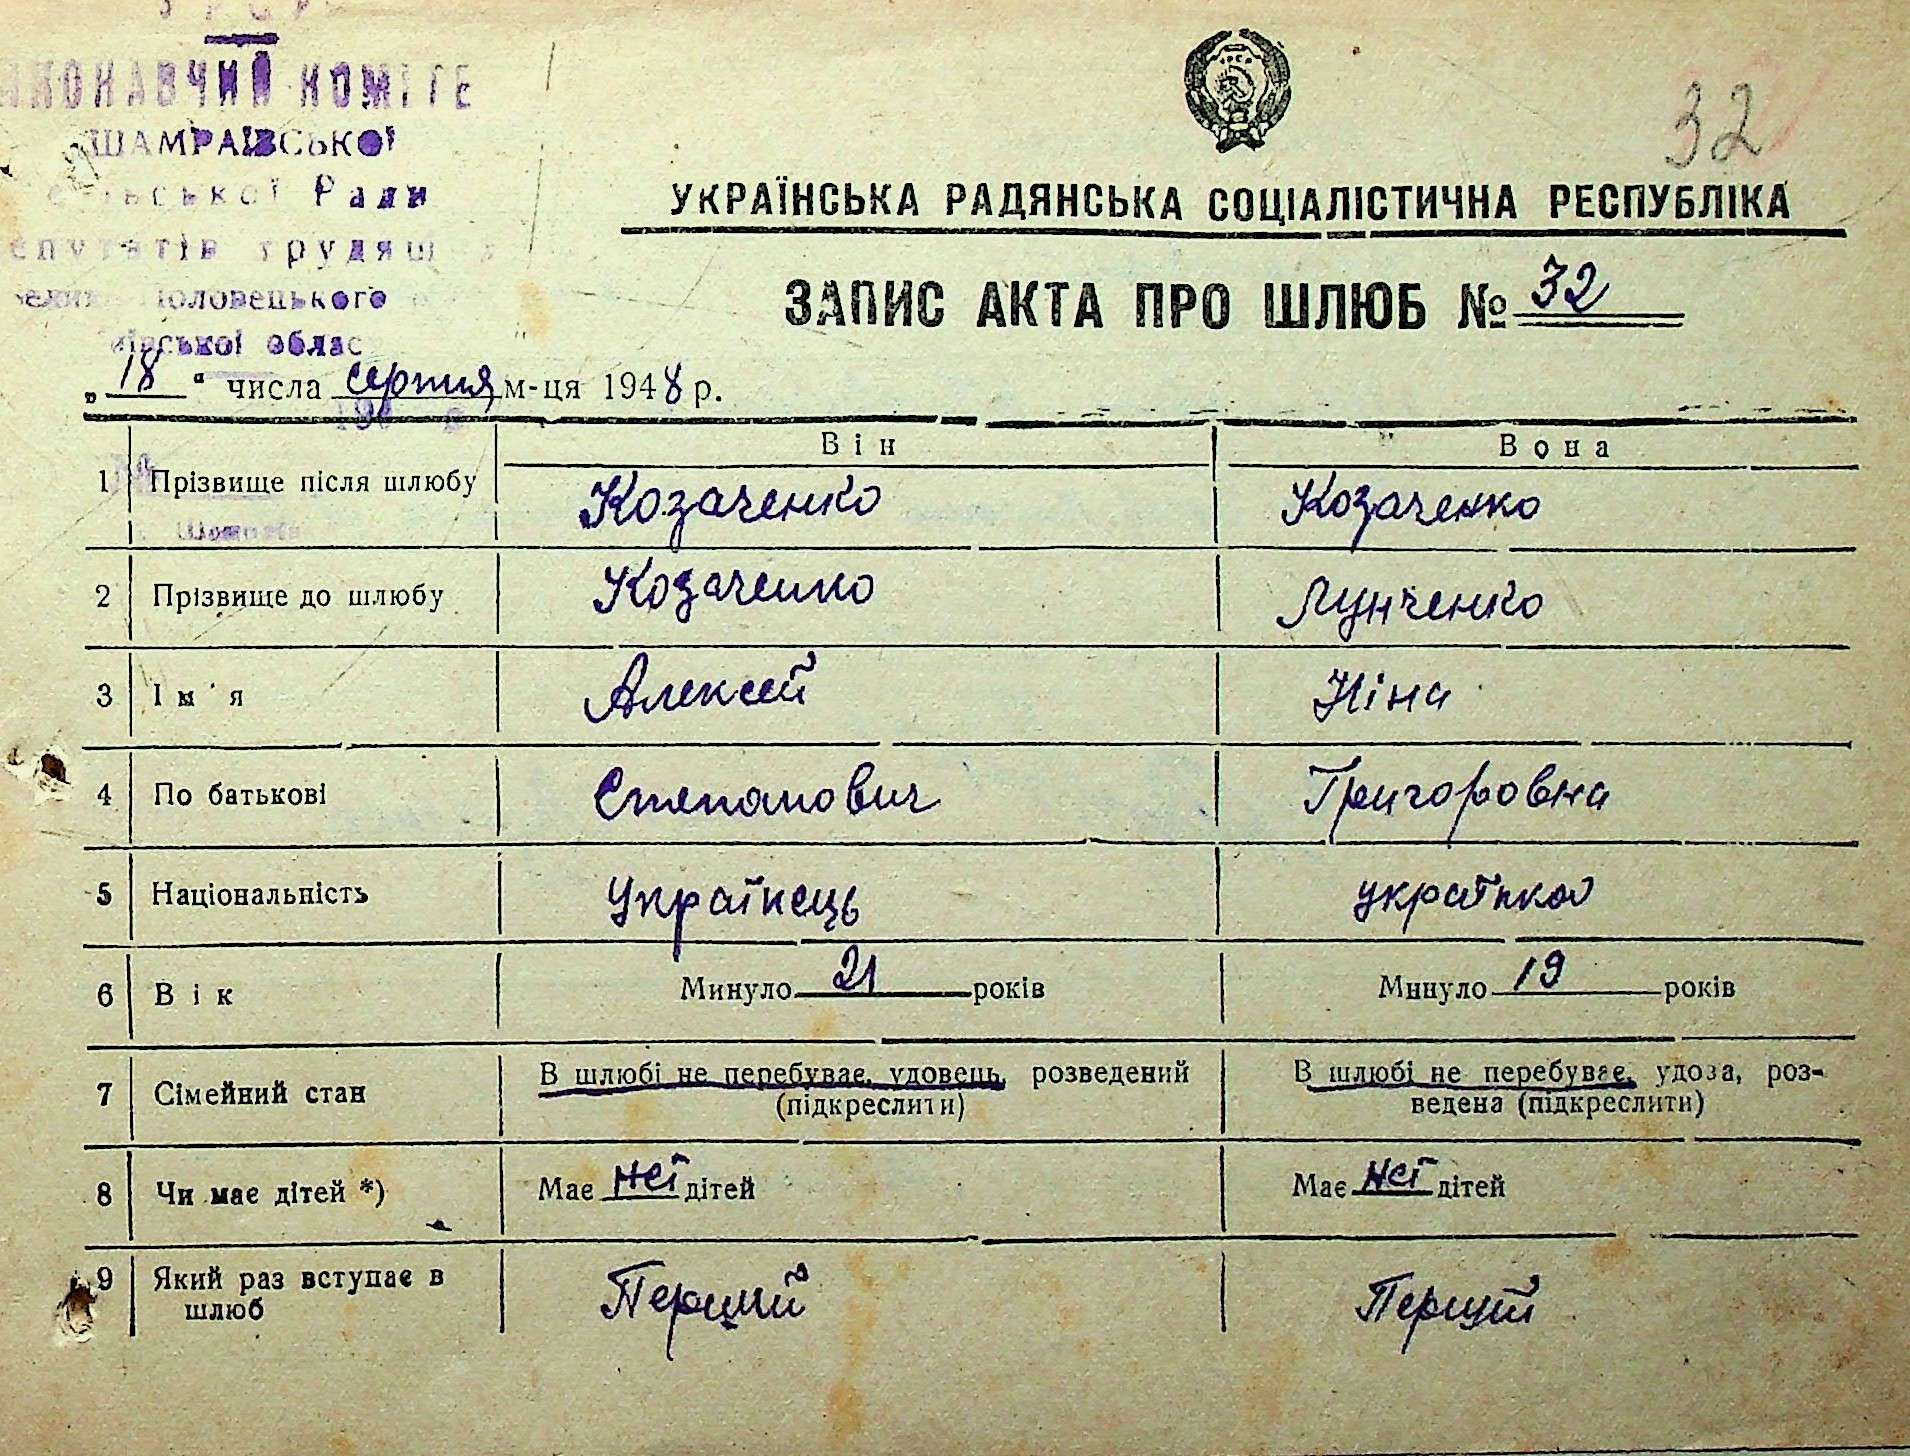 УРСР
ВИКОНАВЧИЙ КОМІТЕ
ШАМРАЇВСЬКОЇ
сільської Ради
депутатів трудящ
Велико Половецького
Київської облас
32
УКРАЇНСЬКА РАДЯНСЬКА СОЦІАЛІСТИЧНА РЕСПУБЛІКА
ЗАПИС АКТА ПРО ШЛЮБ № 32
„18" числа серпня м-ця 1948 р.
Він Вона
1 Прізвище після шлюбу Козаченко Козаченко
2 Прізвище до шлюбу Козаченко Лунченко
3 Ім'я Алексей Ніна
4 По батькові Степанович Григоровна
5 Національність Українець українка
6 Вік Минуло 21 років Минуло 19 років
7 Сімейний стан В шлюбі не перебуває, удовець, розведений В шлюбі не перебуває, удова, роз-
(підкреслити) ведена (підкреслити)
8 Чи має дітей *) Має неї дітей Має неї дітей
9 Який раз вступає в Перший Перший
шлюб